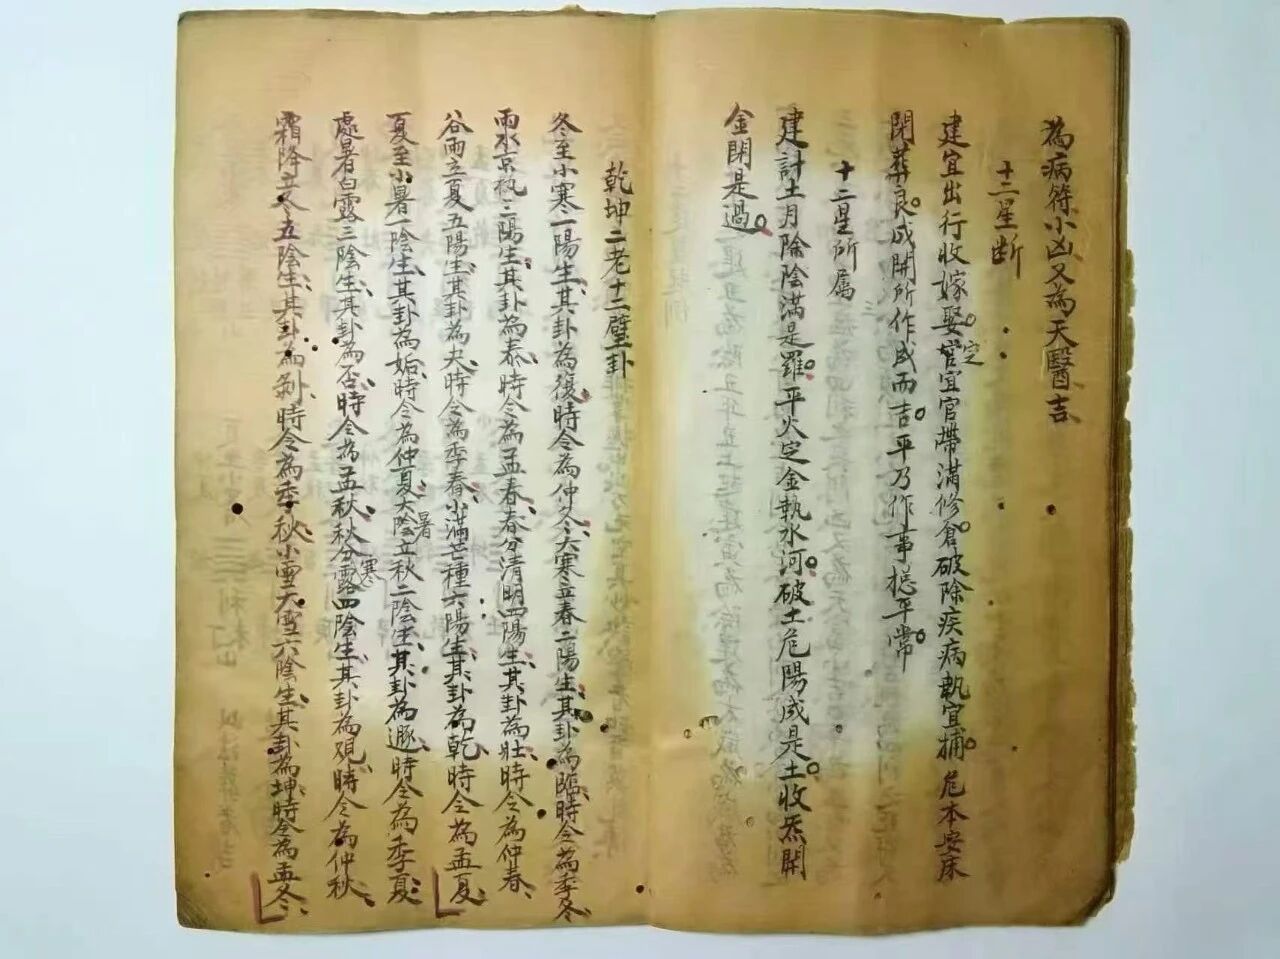 為病符小凶又為天醫吉
十二星断
建宜出行收嫁娶定官宜官帶滿修倉破除疾病執宜捕危本安床
閉葬良成開所作成而吉平乃作事總平常
十二星所屬
建計土月除陰滿是羅平火定金執水河破土危陽成是土收炁開
金閉是過
乾坤二老十二壁卦
冬至小寒一陽生其卦為復時令為仲冬大寒立春二陽生其卦為臨時令為季冬
雨水京執三陽生其卦為泰時令為孟春春分清明四陽生其卦為壯時令為仲春
谷雨立夏五陽生其卦為夬時令為季春小滿芒種六陽生其卦為乾時令為孟夏
夏至小暑一陰生其卦為姤時令為仲夏大暑陰立秋二陰生其卦為遯時令為季夏
處暑白露三陰生其卦為否時令為孟秋秋分寒露四陰生其卦為观時令為仲秋
霜降立冬五陰生其卦為剝時令為季秋小雪大雪六陰生其卦為坤時令為孟冬